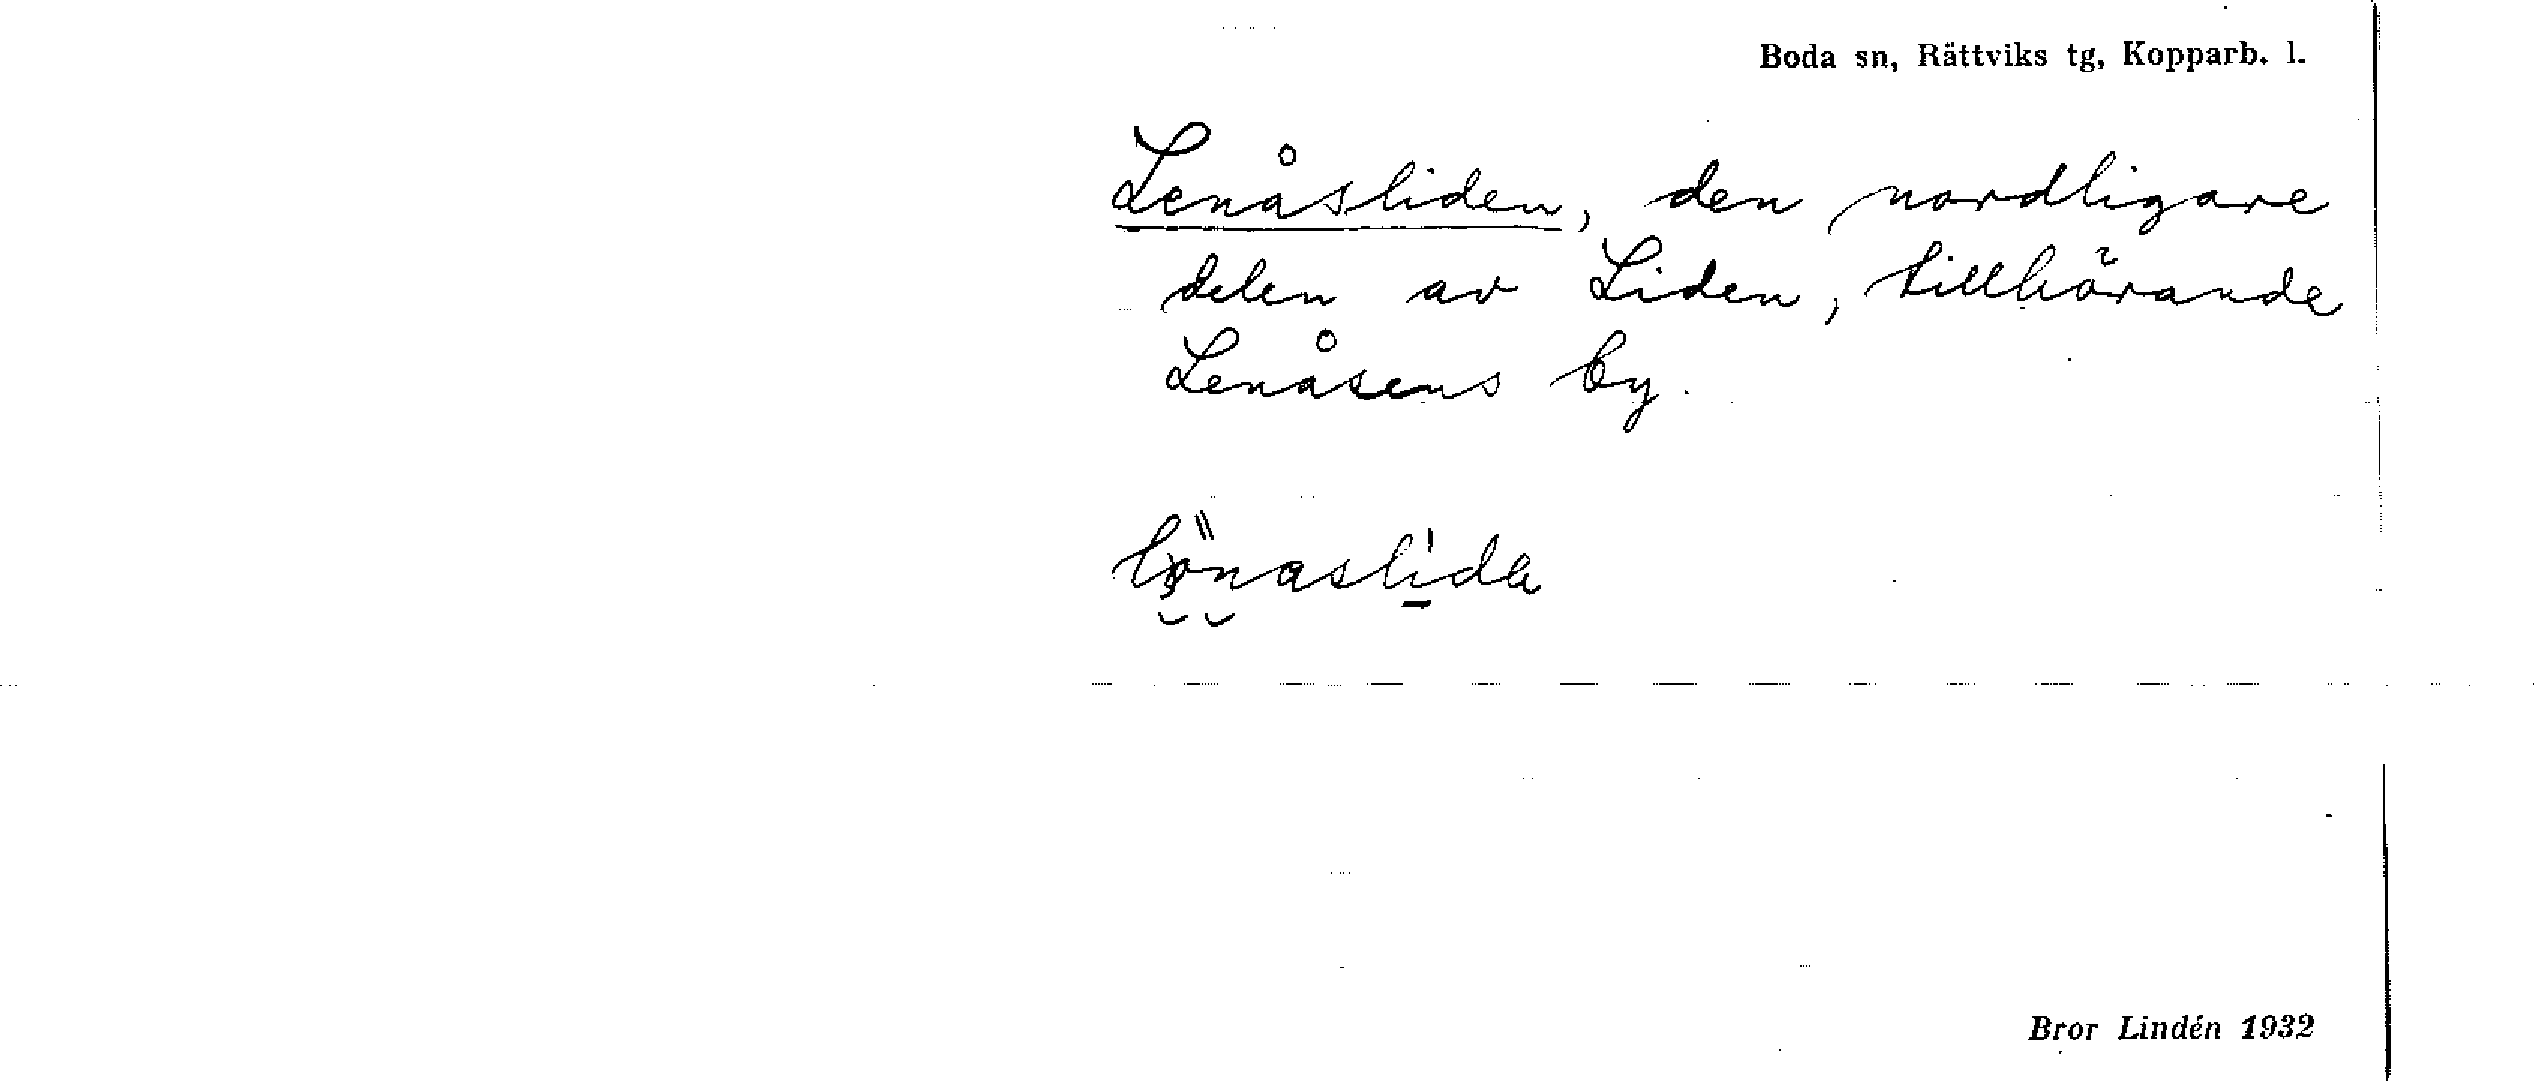 Boda sn, Rättviks tg, Kopparb. l.
Lenåsliden, den nordligare
delen av Liden, tillhörande
Lenåsens by.
Bror Lindén 1932